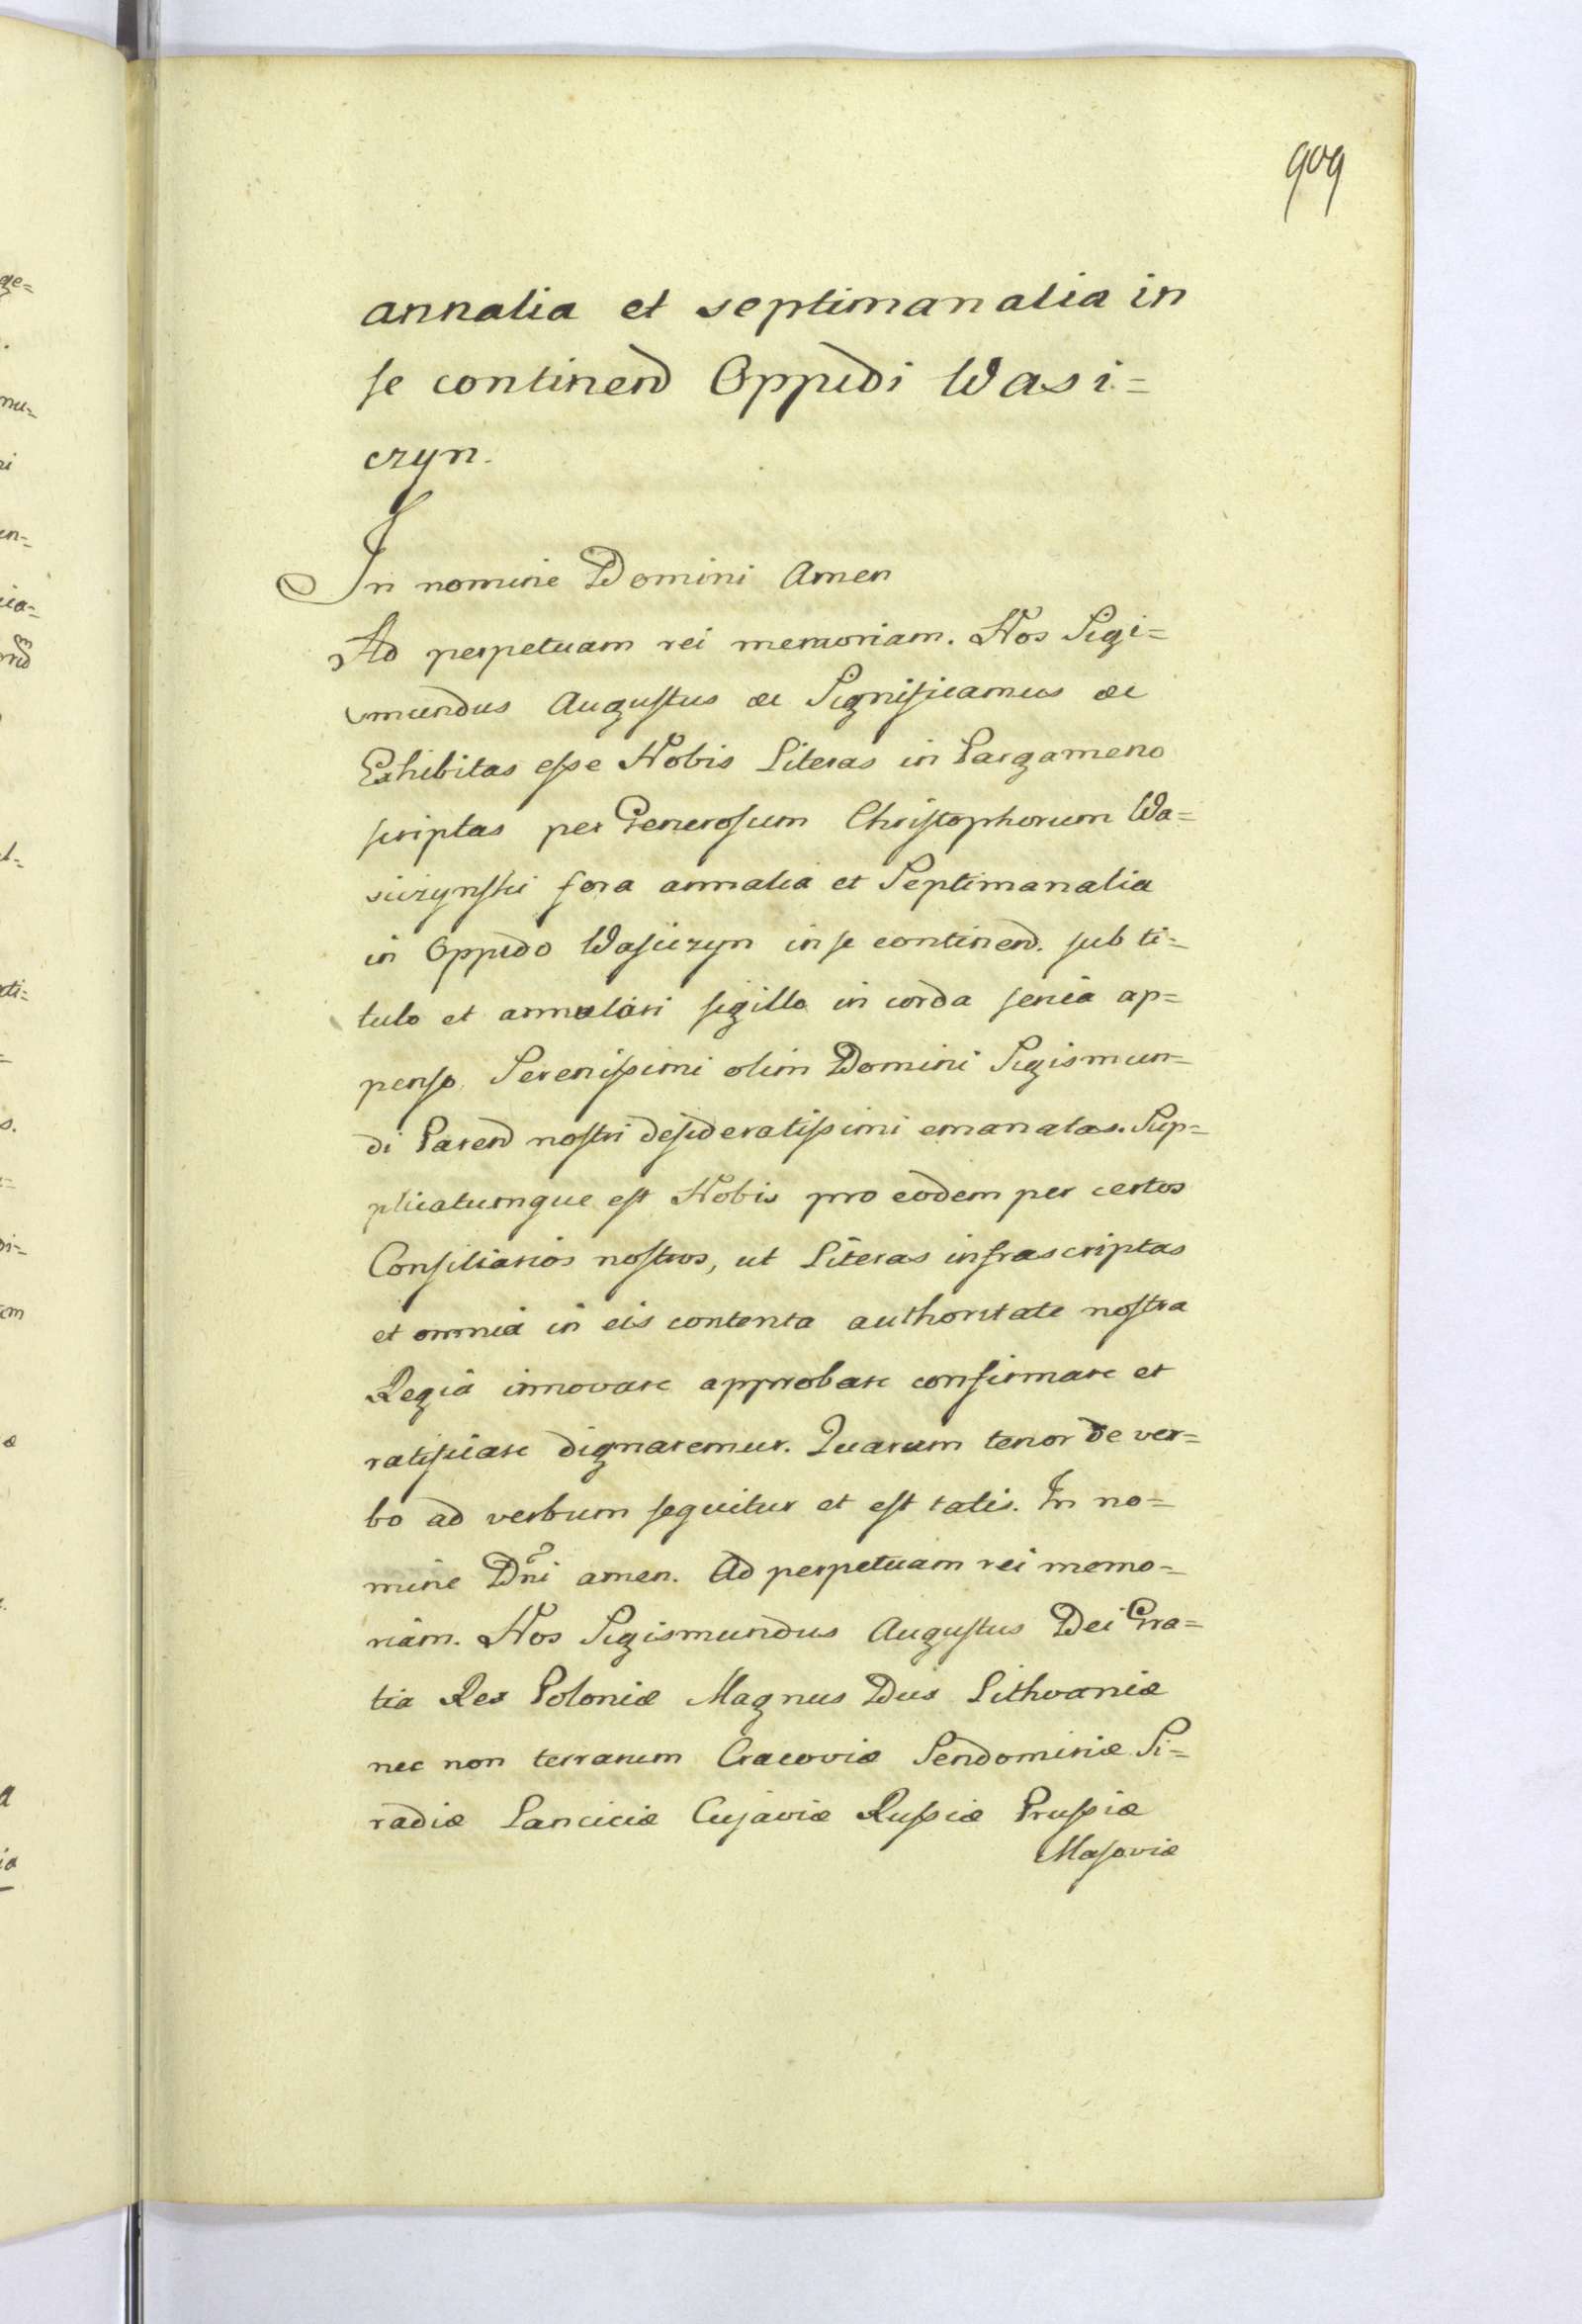 909
annalia et septimanalia in
se continend Oppidi Wasi=
czyn.
In nomine Domini Amen
Ad perpetuam rei memoriam. Nos Sigi=
smundus Augustus &c Significamus &c
Exhibitas esse Nobis Literas in Pargameno
scriptas per Generosum Christophorum Wa=
siczynski fora annalia et Septimanalia
in Oppido Wasiczyn in se continend. sub ti=
tulo et annulari sigillo in corda sericia ap=
penso Serenissimi olim Domini Sigismun=
di Parend nostri desideratissimi emanatas. Sup=
plicatumque est Nobis pro eodem per certos
Consiliarios nostros, ut Literas infrascriptas
et omnia in eis contenta authoritate nostra
Regia innovare approbare confirmare et
ratificare dignaremur. Quarum tenor de ver=
bo ad verbum sequitur et est talis. In no=
mine Dni amen. Ad perpetuam rei memo=
riam. Nos Sigismundus Augustus Dei Gra=
tia Rex Poloniæ Magnus Dux Lithvaniæ
nec non terrarum Cracoviæ Sendomiriæ Si=
radiæ Lanciciæ Cujaviæ Russiæ Prussiæ
Masoviæ